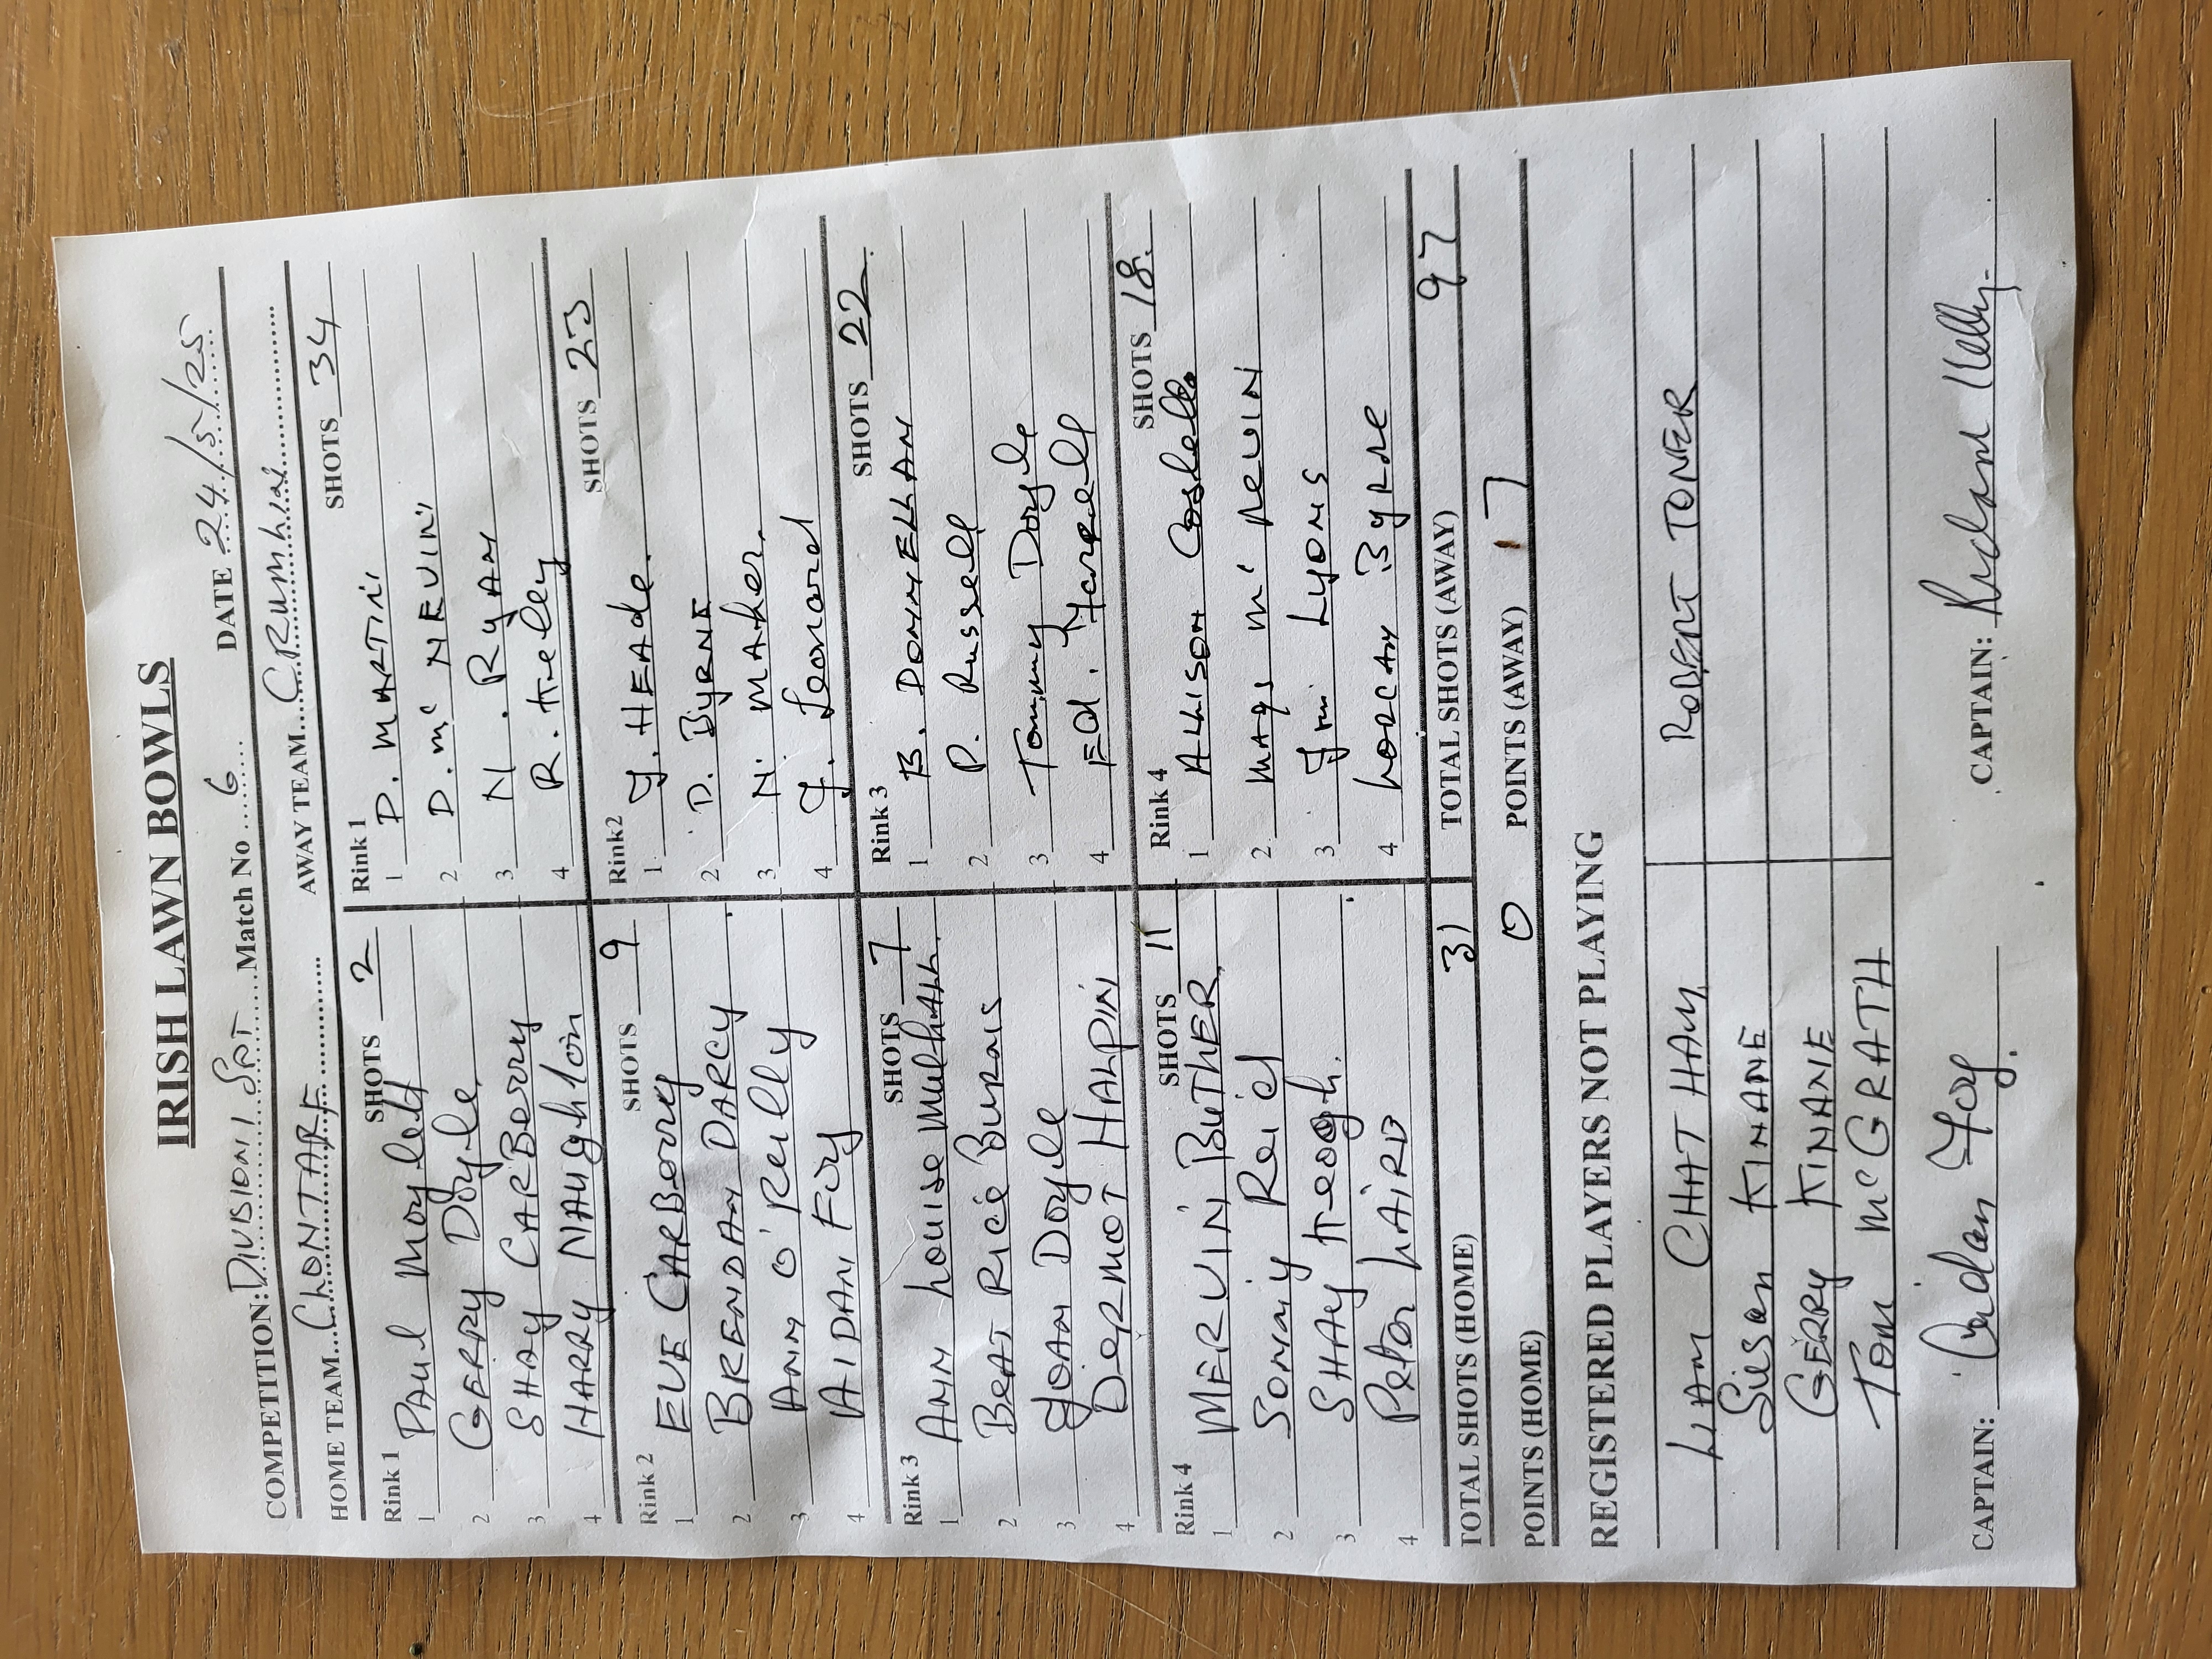 IRISH LAWN BOWLS
COMPETITION: DIVISION 1 SAT Match No 6 DATE 24/5/25
HOME TEAM CLONTARF AWAY TEAM CRUMLIN
Rink 1 SHOTS 2 Rink 1 SHOTS 34
1 PAUL Moyled 1 P. MARTIN
2 GERRY Doyle 2 D. Mc NEVIN
3 SHAY CARBerry 3 N. RYAN
4 HARRY NAUGHton 4 R. Kelly
Rink 2 SHOTS 9 Rink2 SHOTS 23
1 EVE CARBerry 1 J. HEADe.
2 BRENDAN DARCY 2 D. BYRNE
3 ANN O'Reilly 3 N. MAher.
4 AIDAN FOY 4 J. Leonard
Rink 3 SHOTS 7 Rink 3 SHOTS 22
1 ANN Louise MulhALL 1 B. DONNELLAN
2 BeAT Rice 2 P. Russell
3 JOAN DOYle 3 Tommy Doyle
4 DerMOT HALPIN 4 Ed. Farrell
Rink 4 SHOTS 11 Rink 4 SHOTS 18.
1 MERVIN BUTLER 1 ALLISON Costello
2 Sonny Reid 2 MAgs Mc NeVIN
3 SHAY Keogh. 3 Jim LYONS
4 Peter LAIRD 4 LORCAN BYRNe
TOTAL SHOTS (HOME) 31 TOTAL SHOTS (AWAY) 97
POINTS (HOME) 0 POINTS (AWAY) 7
REGISTERED PLAYERS NOT PLAYING
LIAM CHATHAM ROBERT TONER
Susan KINANE
GERRY KINANE
Tom McGRATH
CAPTAIN: Aidan Foy. CAPTAIN: Richard Kelly